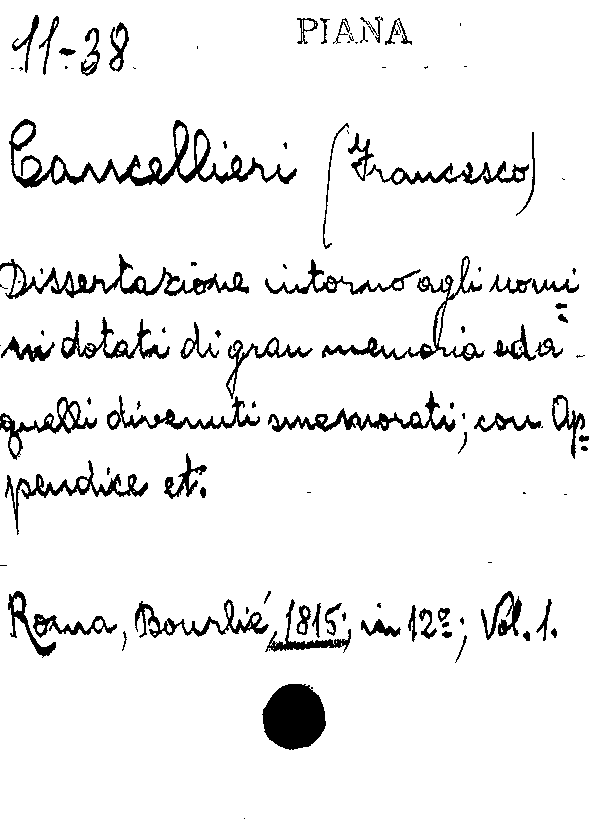 11-38
PIANA
Cancellieri (Francesco)
Dissertazione intorno agli uomi=
ni dotati di gran memoria ed a
quelli divenuti smemorati; con Ap=
pendice et:
Roma, Bourlié, 1815; in 12º; Vol. 1.